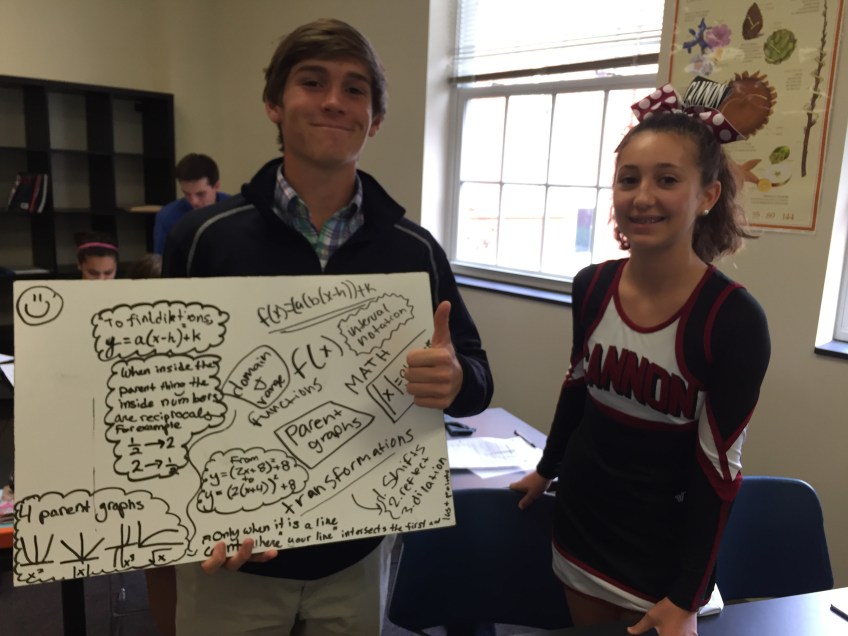 To find dilations
y = a(x-h)²+k
When inside the
parent thing the
inside numbers
are reciprocals
For example
1/2 → 2
2 → 1/2
4 parent graphs
x²
|x|
x³
√x
domain
range
functions
f(x)
interval
notation
MATH
Parent
graphs
From
y=(2x+8)²+8
to
y=(2(x+4))²+8
transformations
1. shifts
2. reflect
3. dilation
Only when it is a line
"where your line" intersects the first and
CANNON
CANNON
144